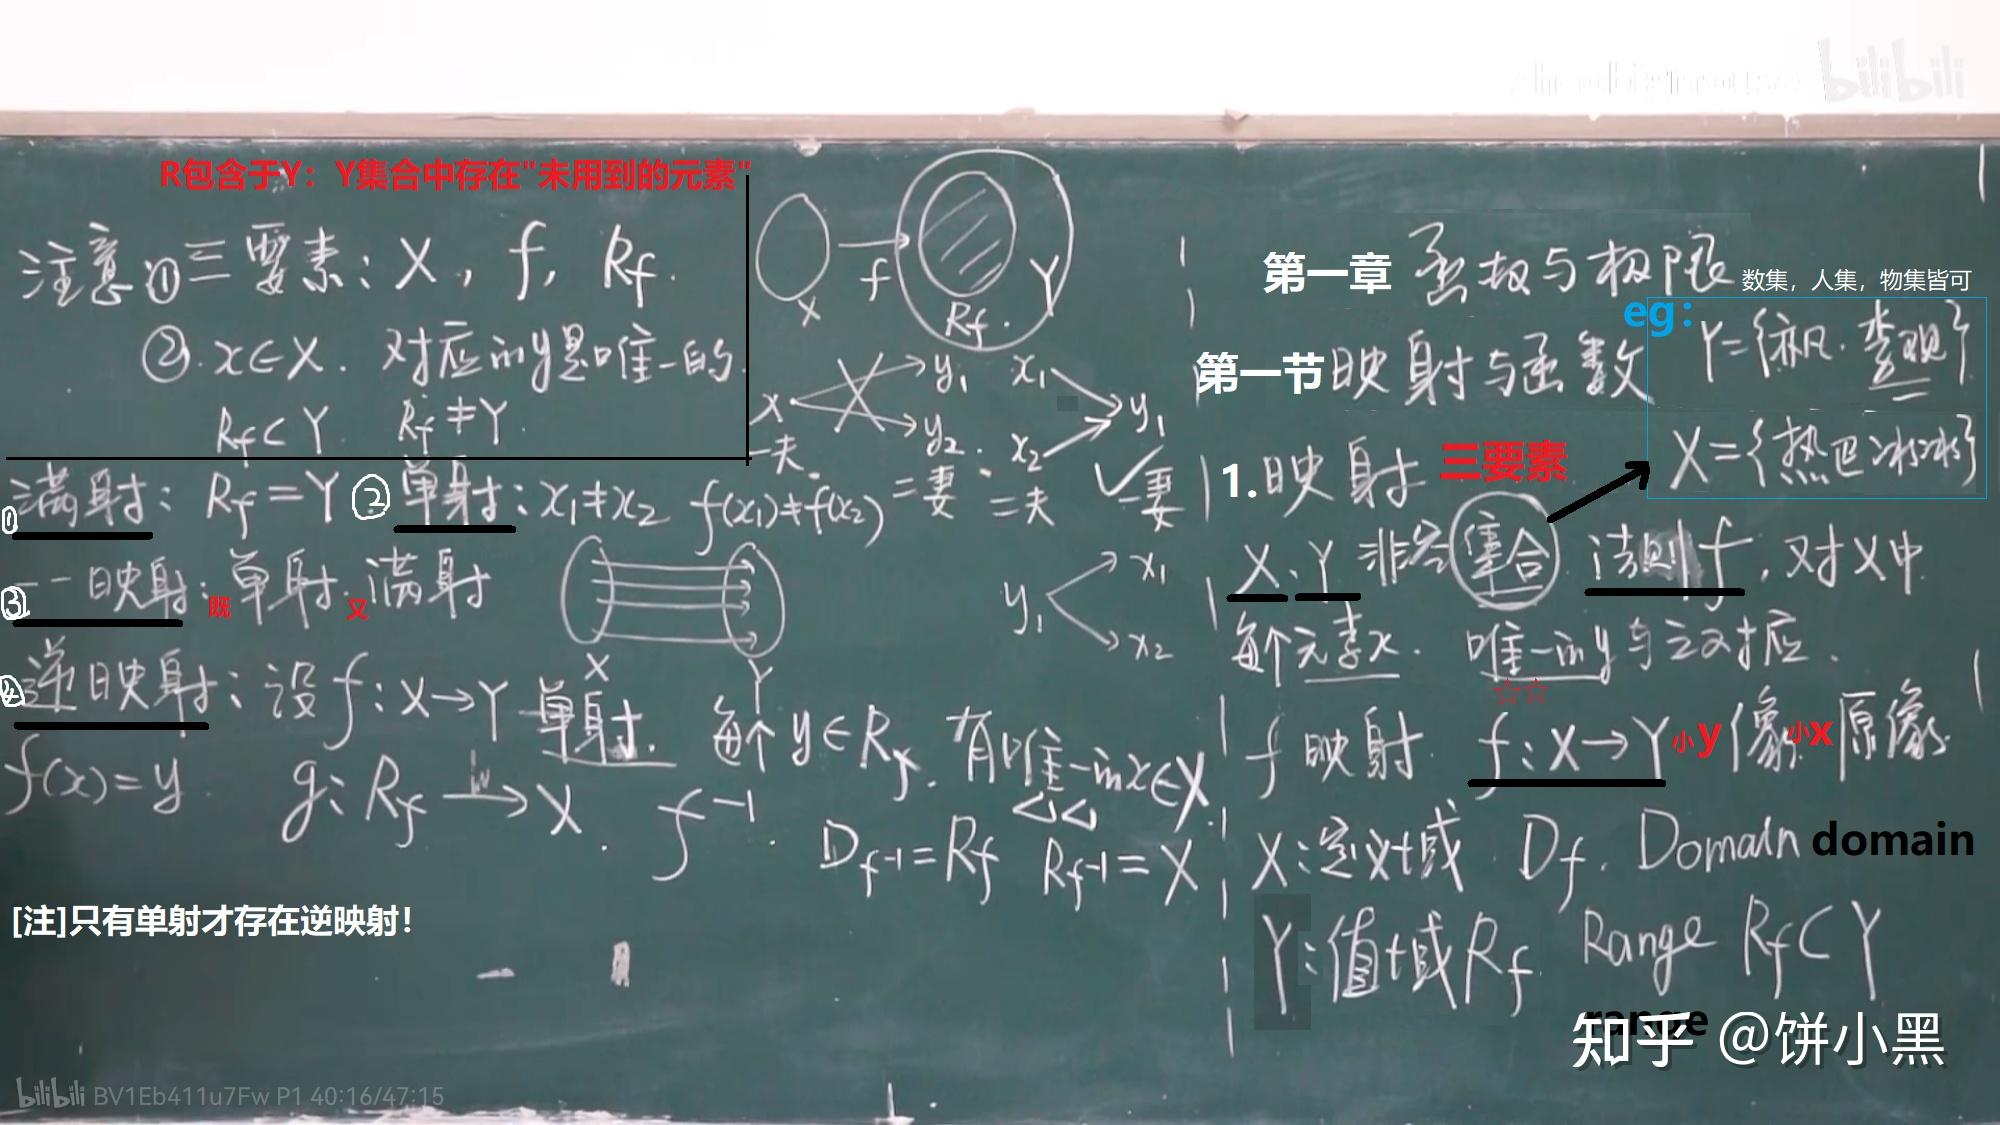 bilibili
R包含于Y：Y集合中存在"未用到的元素"
注意①三要素：X，f，Rf.
②.x∈X. 对应的y是唯一的
Rf⊂Y. Rf≠Y.
X
f
Rf.
Y
x
y₁
y₂.
一夫.
=妻
x₁
x₂
y₁
=夫
一妻
①满射：Rf=Y ②单射：x₁≠x₂ f(x₁)≠f(x₂)
③一一映射：既单射又满射
X
Y
y₁
x₁
x₂
④逆映射：设f：X→Y 单射. 每个y∈Rf. 有唯一的x∈X
f(x)=y. g：Rf→X. f⁻¹.
Df⁻¹=Rf Rf⁻¹=X
[注]只有单射才存在逆映射！
第一章 函数与极限
数集，人集，物集皆可
eg：
第一节映射与函数
X={热巴冰冰}
1.映射
三要素
X、Y非空集合 法则f，对X中
每个元素x. 唯一的y与之对应.
☆☆
f映射. f：X→Y 小y像 小x原像
X：定义域 Df. Domain domain
Y：值域Rf. Range Rf⊂Y
range
知乎 @饼小黑
bilibili BV1Eb411u7Fw P1 40:16/47:15